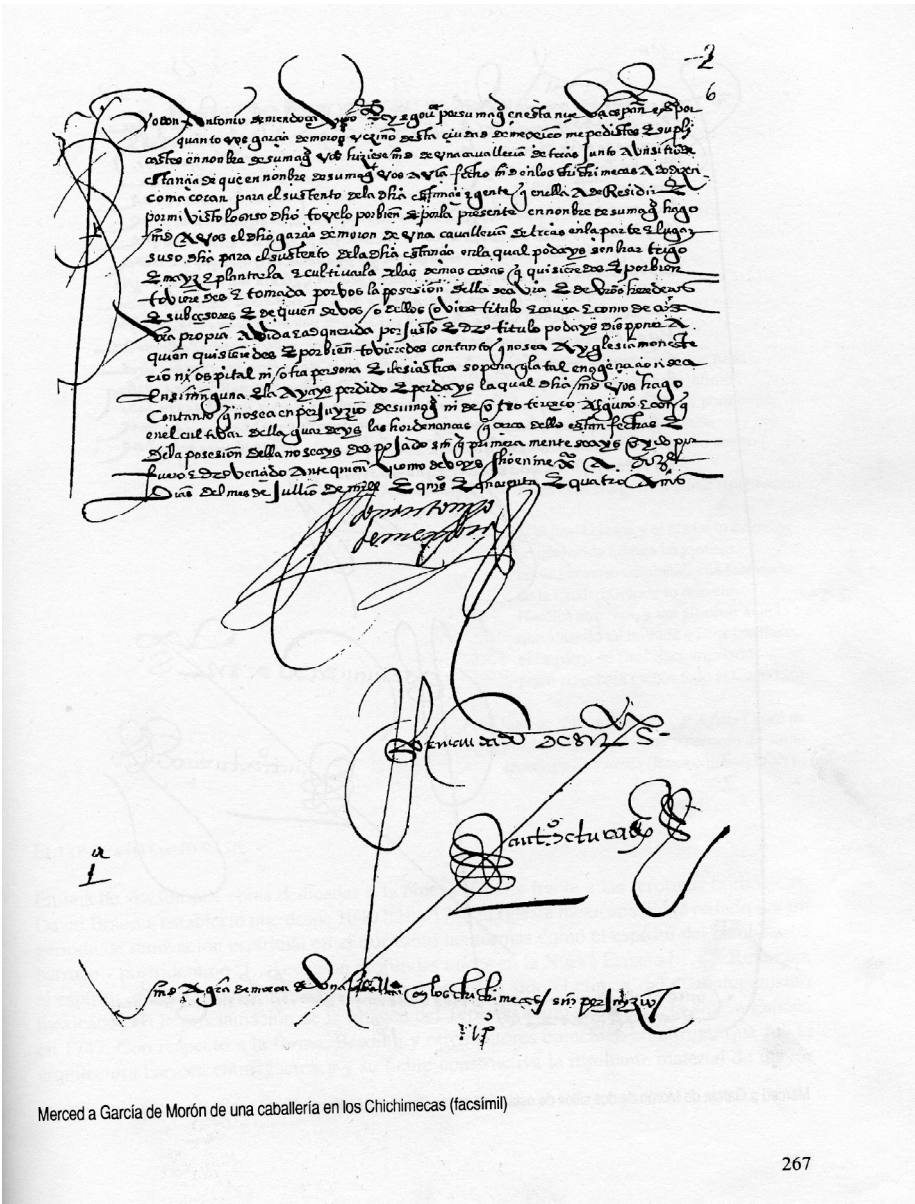 6
yo don Antonio de mendoça Viso Rey e gou^or por su mag en esta nueva españa e por
quanto vos garçia de moron vezino desta çiudad de mexico me pedistes E supli
castes en nonbre de su mag vos hiziese md de una cavalleria de trras Junto A un sitio de
estançia de que en nonbre de su mag vos avia fecho md en los chichimecas
para el sustento de la dha estançia E gente q en ella A de Residir E
por mi visto lo suso dho tovelo por bien E por la presente en nonbre de su mag hago
md A vos el dho garçia de moron de una cavalleria de trras en la parte E lugar
suso dho para el sustento de la dha estançia en la qual podays senbrar trigo
E mayz E plantarla E cultivarla de las demas cosas q quisieredes E por bien
tovieredes E tomada por vos la posesion della sea vra E de vros herederos
E subçesores E de quien de vos o dellos oviere titulo E causa E como de cosa
vra propia Avida E adquerida por justo E dro titulo podays disponer A
quien quisieredes E por bien tovieredes con tanto q no sea A yglesia moneste
rio ni ospital ni otra persona Eclesiastica so pena q la tal enagenaçion sea
En si ninguna E la Ayays perdido E perdays la qual dha md vos hago
Con tanto q no sea en perJuyzio de su mag ni de otro terçero Alguno E con q
en el cultibar della guardeys las hordenanças q çerca dello estan fechas E
de la posesion della no seays desposado sin q primeramente seays oydo E por
fuero E dro vençido Ante quien E como devays fho en mexico A
Dias del mes de Jullio de mill E qos E quarenta E quatro Años
don antonio
de mendoça
Por mandado de su S
ant^o de turcios
md A gra de moron de Una cavalleria en los chichimecas / sin perJuyzio
Merced a García de Morón de una caballería en los Chichimecas (facsímil)
267